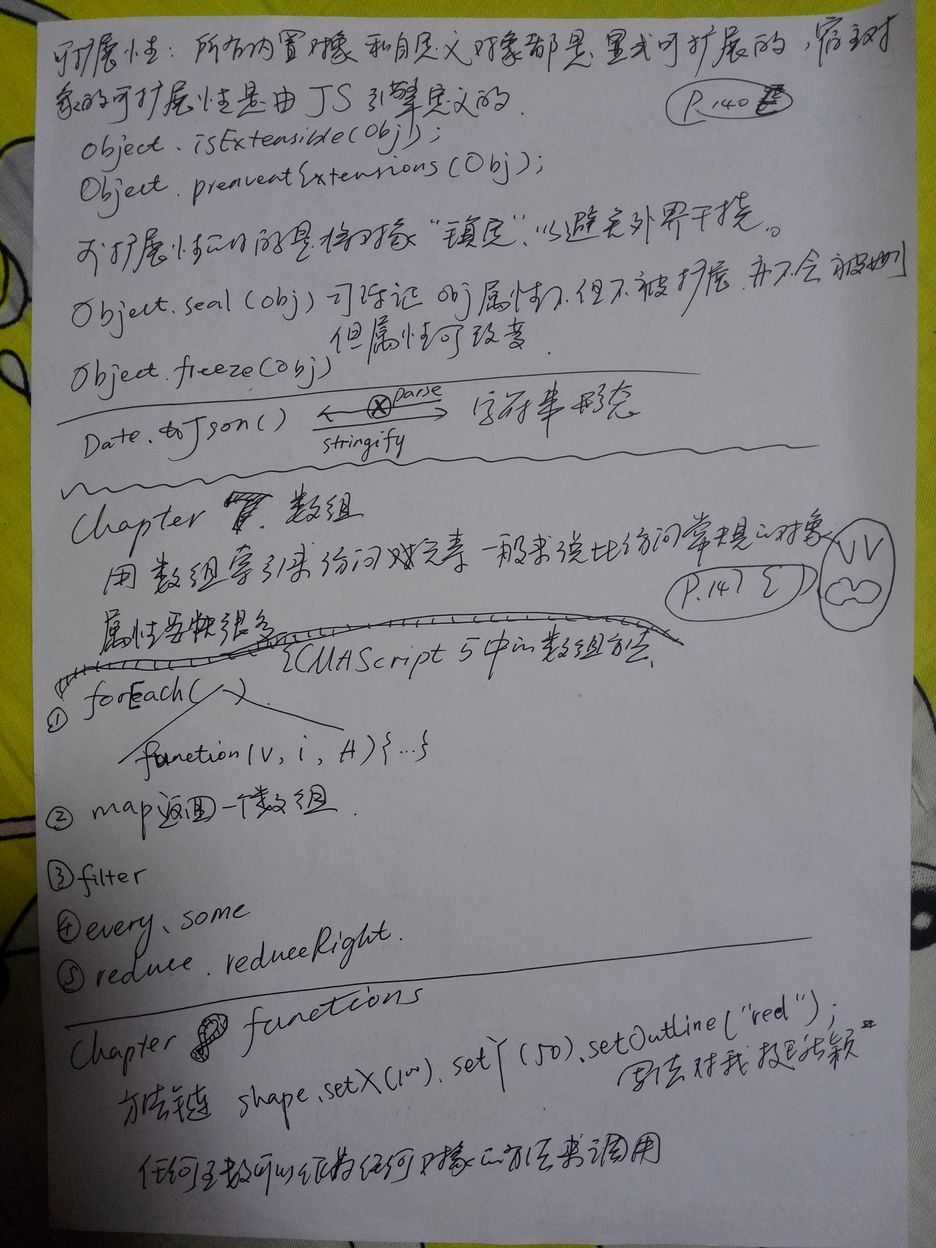 可扩展性：所有内置对象和自定义对象都是显式可扩展的，宿主对
象的可扩展性是由JS引擎定义的
P.140
Object.isExtensible(obj);
Object.prenventExtensions(Obj);
可扩展性的目的是将对象“锁定”，以避免外界干扰。
Object.seal(obj) 可 obj属性不但不被扩展，亦不会被删
但属性可改变.
Object.freeze(obj)
Date.toJson() parse stringify 字符串形态
Chapter 7. 数组
用数组索引来访问元素一般来说比访问常规的对象
属性要快很多
P.147
ECMAScript 5中的数组方法
① forEach( )
function(v, i, A){...}
② map返回一个数组.
③ filter
④ every、some
⑤ reduce. reduceRight.
Chapter 8 functions
方法链 shape.setX(100).setY(50).setOutline("red");
写法对我
任何函数可以作为任何对象的方法来调用